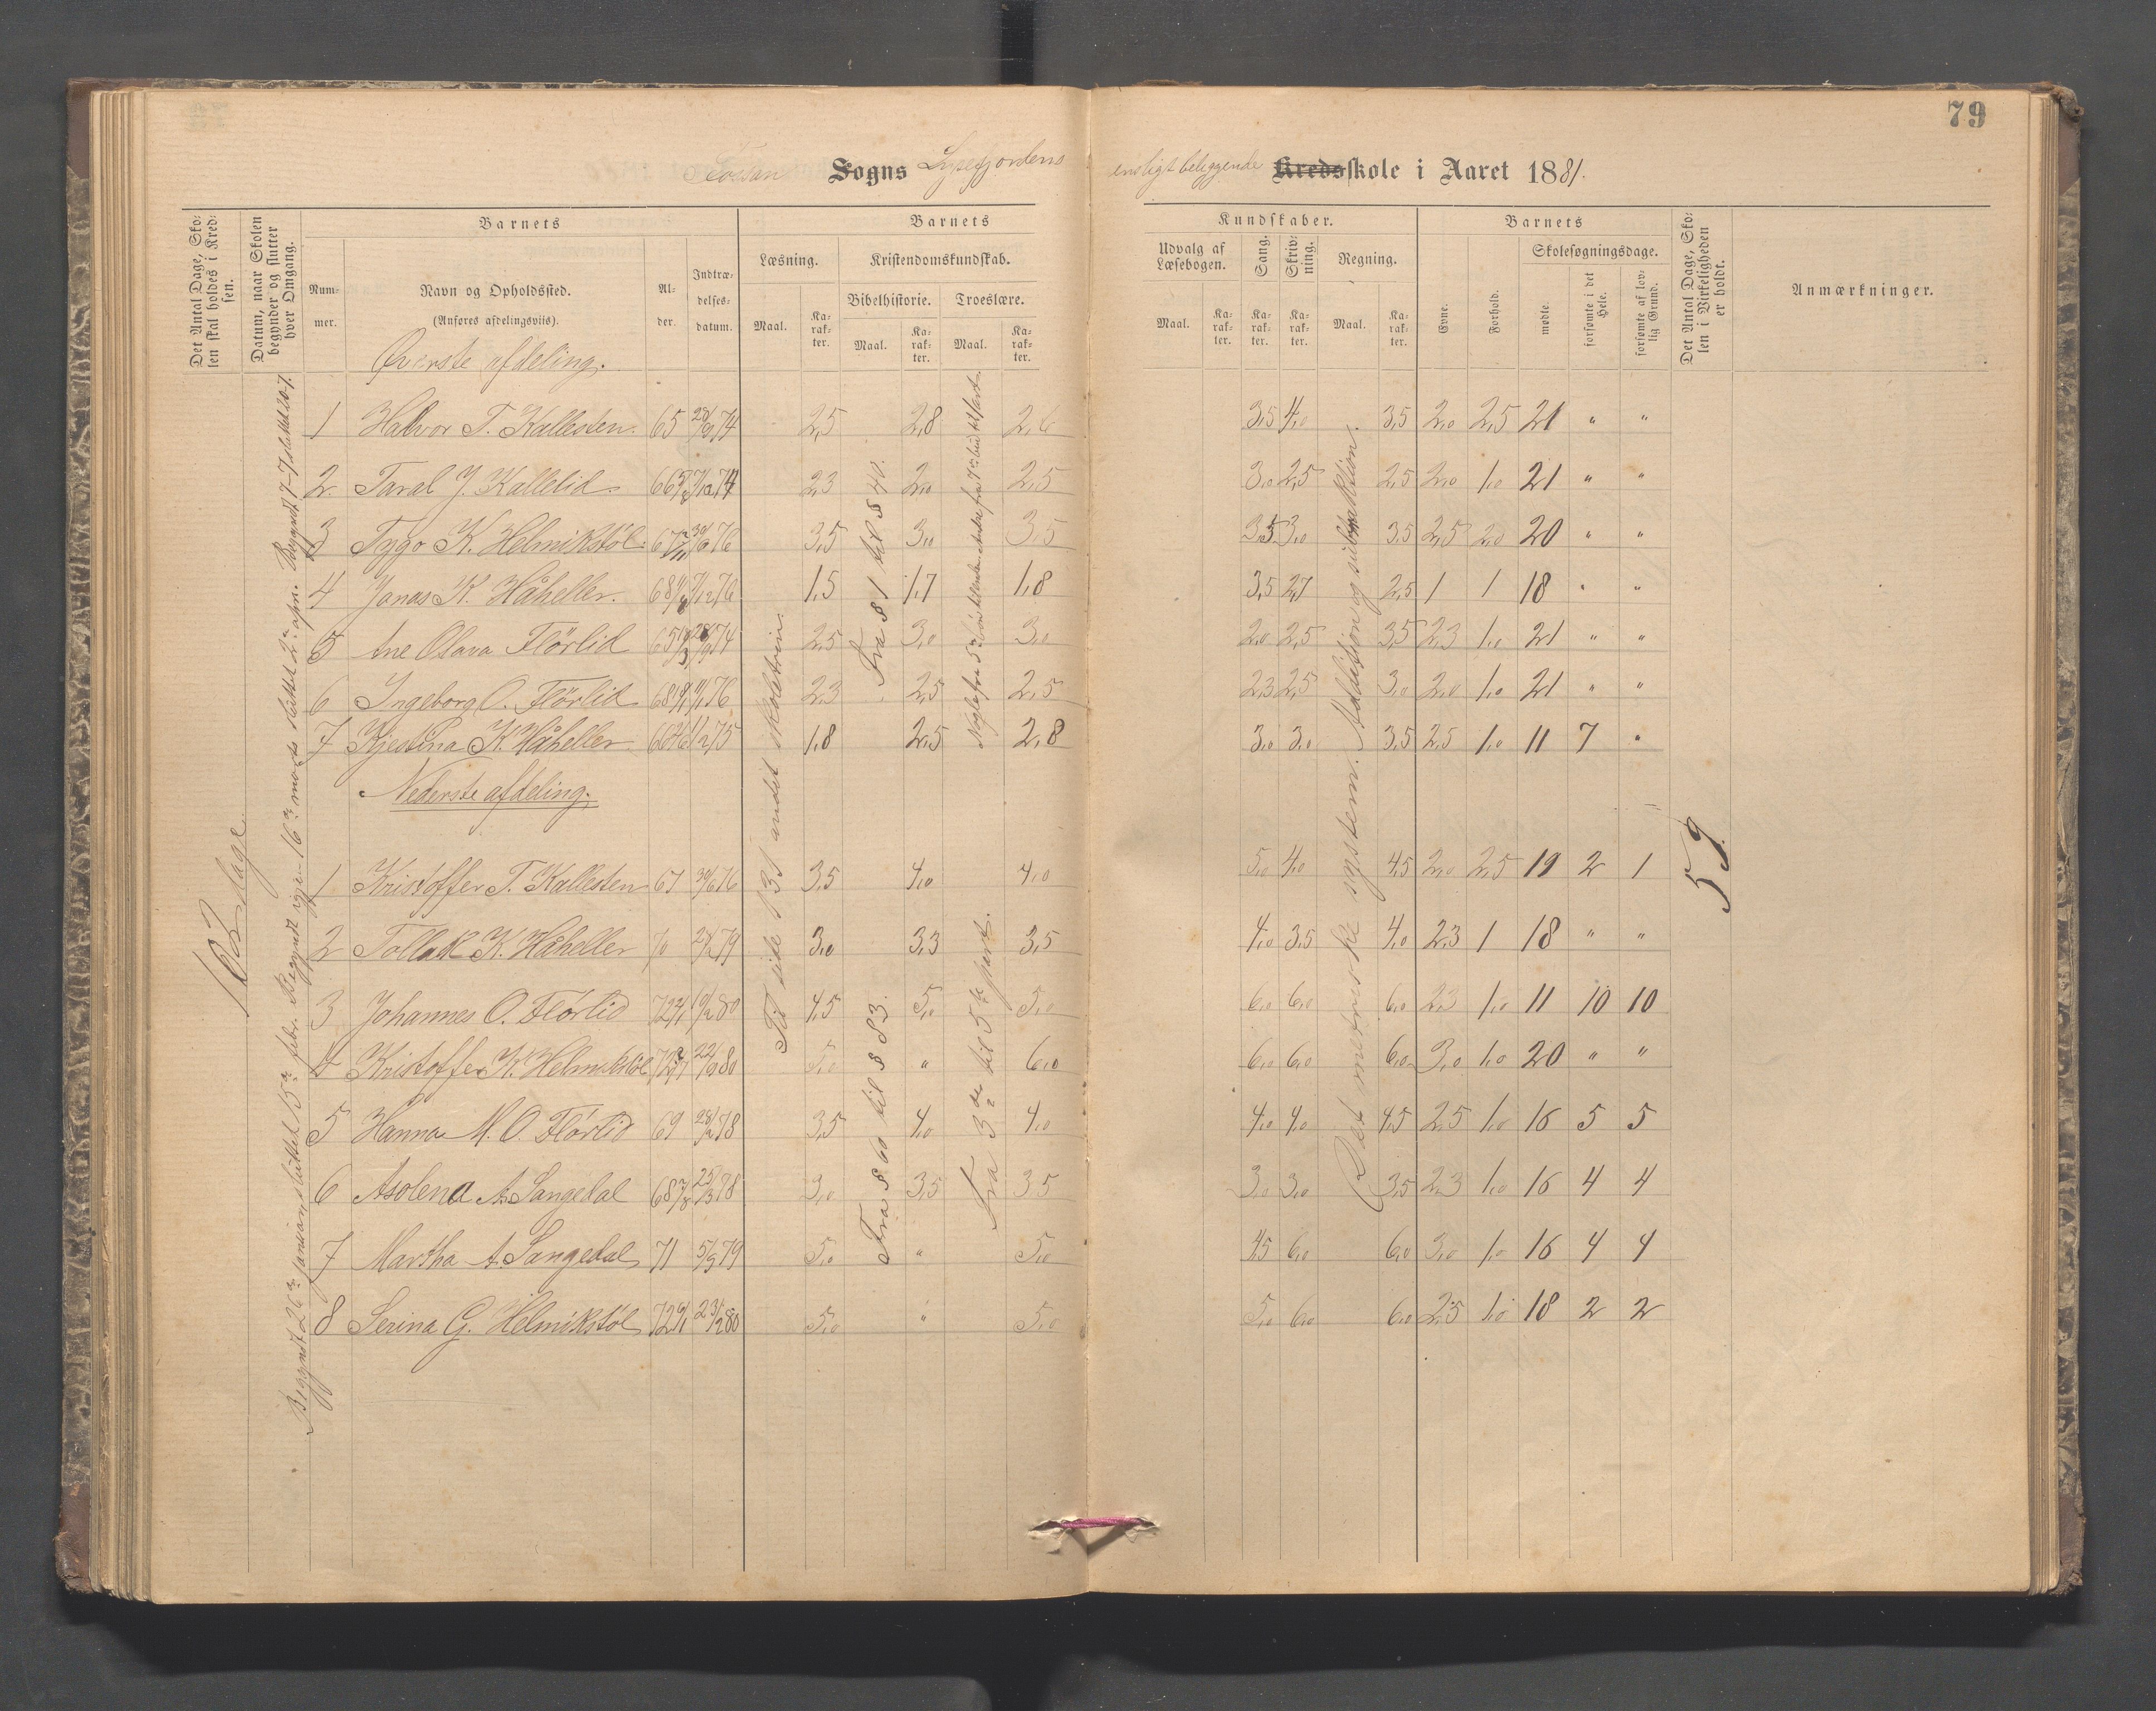 79
Fossan Sogns Lysefjordens
ensligt beliggende Kredsskole i Aaret 1881.
Det Antal Dage, Skolen skal holdes i Kredsen.
Datum, naar Skolen begynder og slutter hver Omgang.
Barnets
Nummer.
Navn og Opholdssted.
(Anføres afdelingsviis).
Alder.
Indtrædelsesdatum.
Barnets
Læsning.
Maal.
Karakter.
Kristendomskundskab.
Bibelhistorie.
Maal.
Karakter.
Troeslære.
Maal.
Karakter.
Kundskaber.
Udvalg af Læsebogen.
Maal.
Karakter.
Sang.
Karakter.
Skrivning.
Karakter.
Regning.
Maal.
Karakter.
Barnets
Evne.
Forhold.
Skolesøgningsdage.
mødte.
forsømte i det Hele.
forsømte af lovlig Grund.
Det Antal Dage, Skolen i Virkeligheden er holdt.
Anmærkninger.
102 dage
Til side 131 andet skoletrin.
Fra § 1 til § 40.
Fra § 60 til § 83.
Fra 3de til 5te part.
Det metriske system. Addition og subtraktion.
59
Øverste afdeling.
1 Halvor T. Kallesten 65 28/9 74 2,5 2,8 2,6 3,5 4,0 3,5 2,0 2,5 21 " "
2 Taral J. Kallelid 2,3 2,0 2,5 3,0 2,5 2,5 2,0 1,0 21 " "
3 Tygo K. Helmikstøl 30/6 76 3,5 3,0 3,5 3,5 3,0 3,5 2,5 2,0 20 " "
4 Jonas K. Håheller. 1,5 1,7 1,8 3,5 2,7 2,5 1 1 18 " "
5 Ane Olava Flørlid 28/9 74 2,5 3,0 3,0 2,0 2,5 3,5 2,3 1,0 21 " "
6 Ingeborg O. Flørlid 2,3 2,5 2,5 2,3 2,5 3,0 2,0 1,0 21 " "
7 Kjestina K. Håheller 1,8 2,5 2,8 3,0 3,0 3,5 2,5 1,0 11 7 "
Nederste afdeling.
1 Kristoffer T. Kallesten 67 30/6 76 3,5 4,0 4,0 5,0 4,0 4,5 2,0 2,5 19 2 1
2 Tollak K. Håheller 70 3,0 3,3 3,5 4,0 3,5 4,0 2,3 1 18 " "
3 Johannes O. Flørlid 4,5 5,0 5,0 6,0 6,0 6,0 2,3 1,0 11 10 10
4 Kristoffer K. Helmikstøl 5,0 " 6,0 6,0 6,0 6,0 3,0 1,0 20 " "
5 Hanna M. O. Flørlid 69 28/2 78 3,5 4,0 4,0 4,0 4,0 4,5 2,5 1,0 16 5 5
6 Asolena A. Sangedal 25/3 78 3,0 3,5 3,5 3,0 3,0 3,5 2,3 1,0 16 4 4
7 Martha A. Sangedal 71 5/3 79 5,0 " 5,0 4,5 6,0 6,0 3,0 1,0 16 4 4
8 Serina G. Helmikstøl 23/2 80 5,0 " 5,0 5,0 6,0 6,0 2,5 1,0 18 2 2